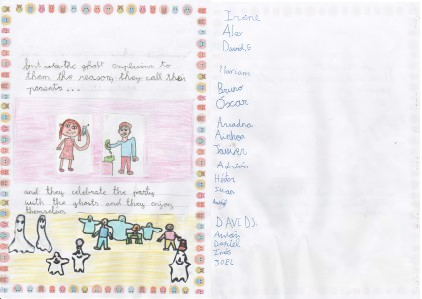 but the ghost explains to
them the reason, they call their
parents...
and they celebrate the party
with the ghosts and they enjoy
themselves
Irene
Alex
David.G
Mariam
Bruno
Óscar
Ariadna
Ainhoa
Javier
Adrián
Héctor
Iván
DAVID S.
Andrés
Daniel
Inés
JOEL